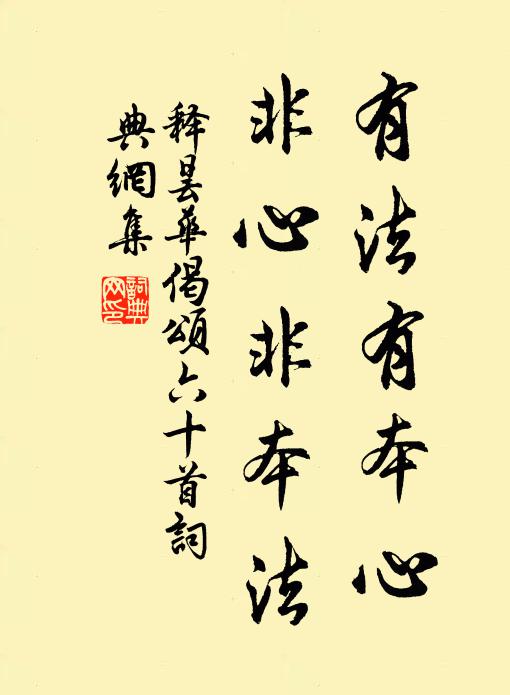 有法有本心
非心非本法
释昙华偈颂六十首詞
典網集
詞典网印